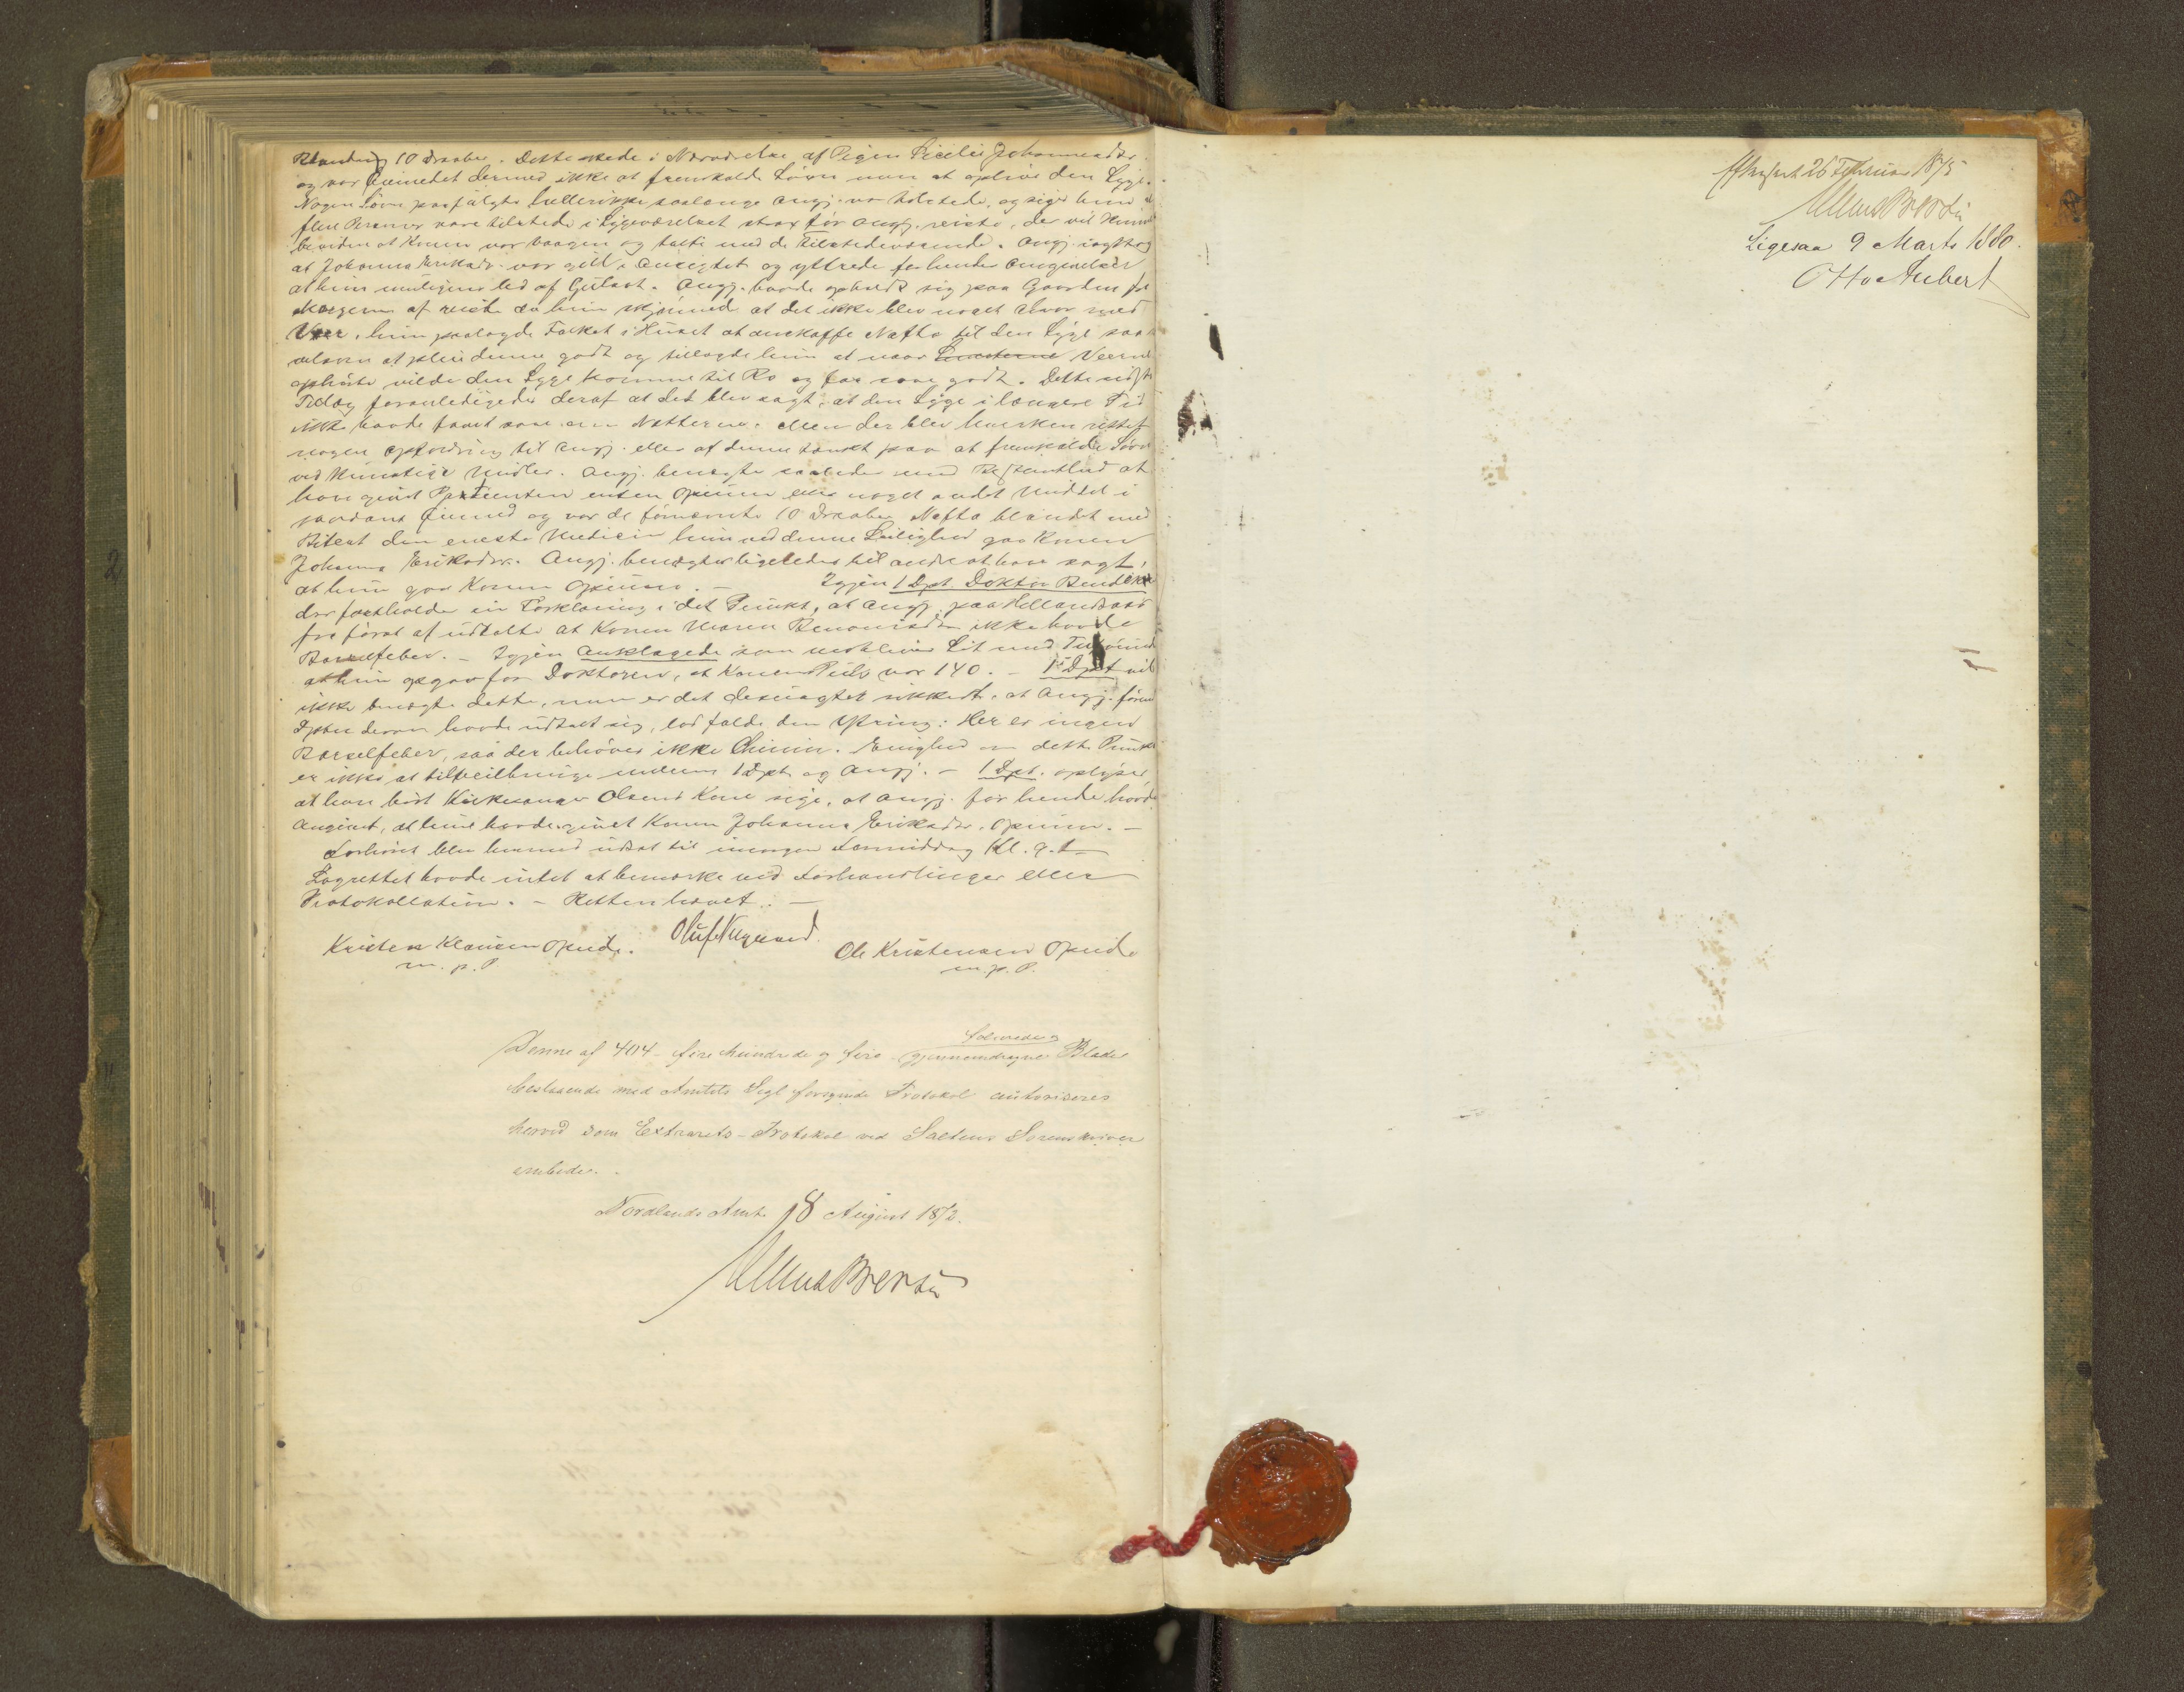 Blanding 10 Draaber. Dette skede i Nærværelse af Pigen Johannesdtr.
og var Øiemedet dermed ikke at fremkalde Søvn men at oplive den Syge.
Nogen Søvn paafulgte hellerikke saalænge Angj. var tilstede, og siger hun at
flere Personer vare tilstede i Sygeværelset strax før Angj. reiste, der vil kunne
bevidne at Konen var vaagen og talte med de Tilstedeværende. Angj. iagttog
at Johanna Eriksdr. var gul i Ansigtet og yttrede for hendes Angivelser
at hun muligens led af Gulsot. Angj. havde opholdt sig paa Gaarden fra
Morgenen af reiste da hun skjønnede at det ikke blev noget Alvor med
Veer, hun paalagde Folket i Huset at anskaffe Nafta til den Syge saa
velsom at pleie denne godt og tillagde hun at naar Veerne
ophørte vilde den Syge komme til Ro og faa sove godt. Dette sidste
Tillæg foranledigedes deraf at det blev sagt, at den Syge i længere Tid
ikke havde faaet sove om Nætterne. Men der blev hverken rettet
nogen Opfordring til Angj. eller af denne tænkt paa at fremkalde Søvn
ved kunstige Midler. Angj. benægter saaledes med Bestemthed at
have givet Patienten enten Opium eller noget andet Middel i
saadant Øiemed og var de førnævnte 10 Draaber Nafta blandet med
den eneste Medicin hun ved denne Leilighed gav Konen
Johanna Eriksdr. Angj. benægter ligeledes til andre at have sagt,
at hun gav Konen Opium. — Igjen 1 Dpt. Doktor
der fastholder sin Forklaring i det Punkt, at Angj. paa
fra først af udtalte at Konen Maren ikke havde
Barselfeber. — Igjen Anklagede som
at hun opgav for Doktoren, at Konens Puls var 140. — 1 Dpt vil
ikke benægte dette, men er det desuagtet sikkert, at Angj. førend
Dpten derom havde udtalt sig, lod falde den Yttring: Her er ingen
Barselfeber, saa der behøves ikke Chinin. Enighed om dette Punkt
er ikke at tilveiebringe mellem 1 Dpt og Angj. — 1 Dpt. oplyser,
at han hørt Kirkesanger Olsens Kone sige, at Angj. for hende havde
Angivet, at hun havde givet Konen Johanna Eriksdr. Opium. —
Forhøret blev hermed udsat til imorgen Formiddag Kl. 9.
Lagrettet havde intet at bemærke ved Forhandlinger eller
Protokollation. — Retten hævet. —
Kristen Klausen Opeide. Oluf Nygaard. Ole Kristensen Opeide
m. p. P. m. p. P.
folierede og
Denne af 404 – fire hundrede og fire – gjennemdragne Blade
bestaaende med Amtets Segl forsynede Protokol autoriseres
herved som Extrarets-Protokol ved Saltens Sorenskriver
embede.
Nordlands Amt 18 August 1872.
Efterseet 26 Februar 1875
Ligesaa 9 Marts 1880.
Otto Aubert